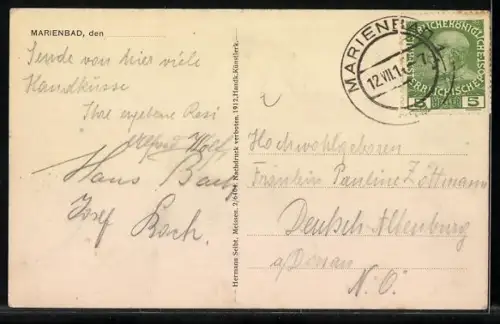 MARIENBAD, den
Sende von hier viele
Handküsse
Ihre ergebene Resi
Alfred Wolf
Hans Bach
Josef Koch.
Hermann Seibt, Meissen. 2/6404. Nachdruck verboten. 1912. Handk.-Künstlerk.
MARIENBAD
12.VII.1
5 5
Hochwohlgeboren
Fräulein Pauline Zottmann
Deutsch-Altenburg
a/Donau
N. Ö.